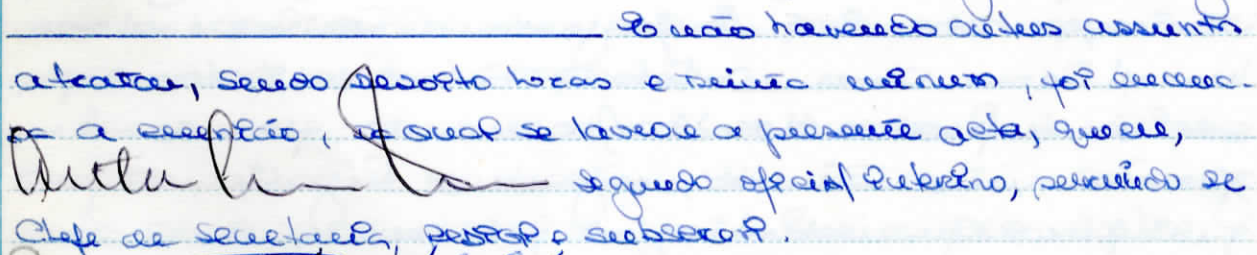 E não havendo outros assuntos
a tratar, sendo dezoito horas e trinta minutos, foi encerra-
da a reunião, da qual se lavrou a presente acta, que eu,
segundo oficial interino, servindo de
Chefe de Secretaria, redigi e subscrevi.